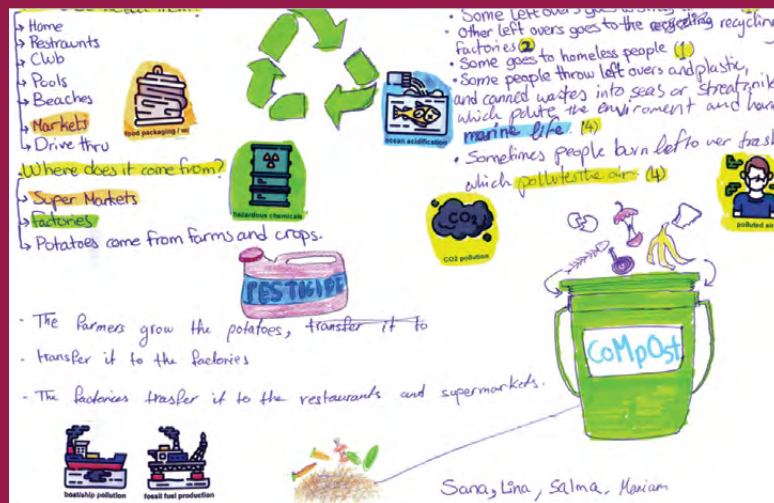 Home
Restraunts
Club
Pools
Beaches
Markets
Drive thru
Where does it come from?
Super Markets
factories
Potatoes come from farms and crops.
food packaging /
hazardous chemicals
PESTICIDE
- The farmers grow the potatoes, transfer it to
- transfer it to the factories
- The factories trasfer it to the restaurants and supermarkets.
boat/ship pollution
fossil fuel production
• Some left overs goes to
• Other left overs goes to the recycling
factories (2)
• Some goes to homeless people (1)
• Some people throw left overs and plastic,
and canned wastes into seas or
which polute the enviroment and
marine life. (4)
• Sometimes people burn leftover trash
which pollutes the air. (4)
ocean acidification
CO2
CO2 pollution
polluted air
CoMpOst
Sana, Lina, Salma, Mariam